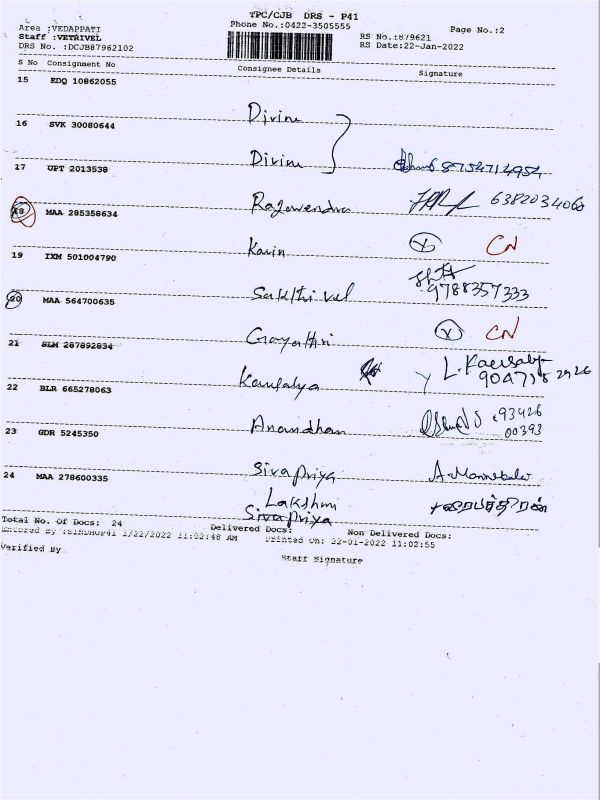 TPC/CJB DRS - P41
Area :VEDAPPATI Phone No.:0422-3505555 Page No.:2
Staff :VETRIVEL RS No.:879621
DRS No. :DCJB87962102 RS Date:22-Jan-2022
S No Consignment No Consignee Details Signature
15 EDQ 10862055 Divine
16 SVK 30080644 Divine
17 UPT 2013538 8754714954
Ragavendra 6382034060
18 MAA 285358634
Kavin X CN
19 IXM 501004790
Sakthivel 9788357333
20 MAA 564700635
Gayathri X CN
21 SLM 287892834
Kausalya
22 BLR 665278063
Anandhan 93426
00393
23 GDR 5245350
Sivapriya
24 MAA 278600335
Lakshmi
Sivapriya
Total No. Of Docs: 24 Delivered Docs: Non Delivered Docs:
Entered By :SINDHUP41 1/22/2022 11:02:48 AM Printed On: 22-01-2022 11:02:55
Verified By Staff Signature